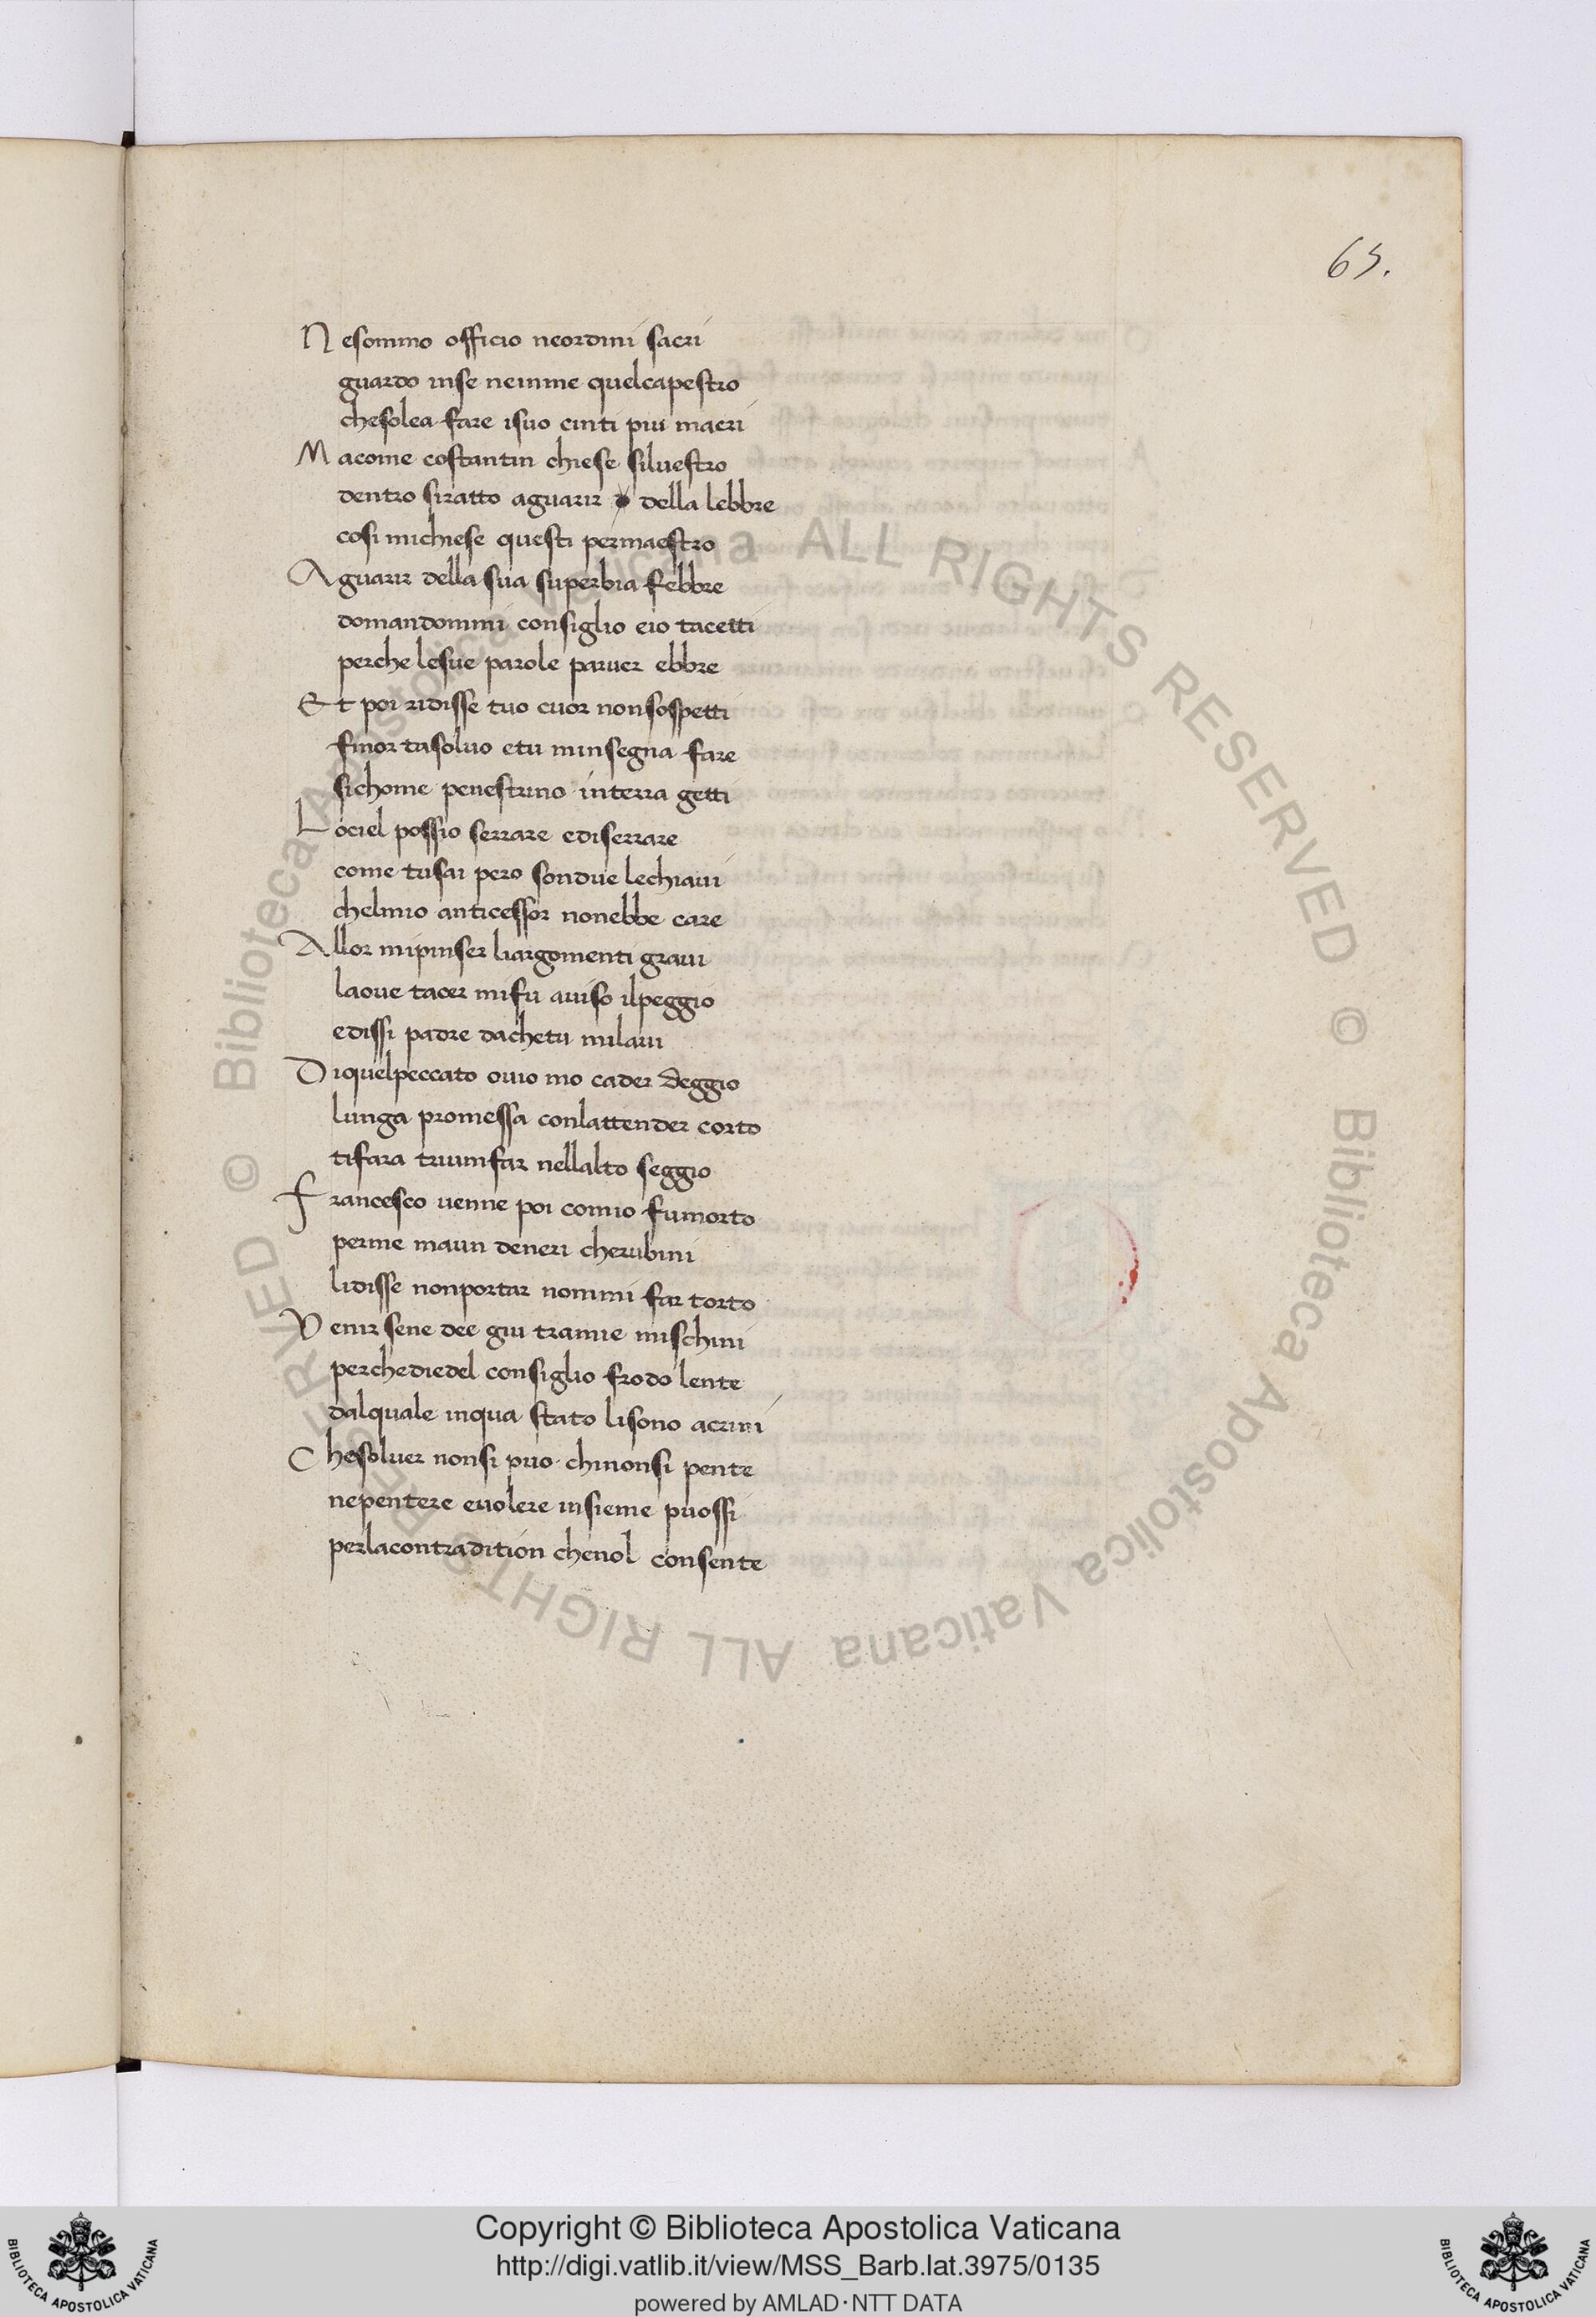 65.
Nesommo officio neordini sacri
guardo inse neinme quelcapestro
chesolea fare isuo cinti piu macri
Macome costantin chiese siluestro
dentro siratto aguarir della lebbre
cosi michiese questi permaestro
Aguarir della sua superbia febbre
domandommi consiglio eio tacetti
perche lesue parole paruer ebbre
Et poi ridisse tuo cuor nonsospetti
finor tasoluo etu minsegna fare
sichome penestrino interra getti
Lociel possio serrare ediserrare
come tusai pero sondue lechiaui
chelmio anticessor nonebbe care
Allor mipinser liargomenti graui
laoue tacer mifu auiso ilpeggio
edissi padre dachetu milaui
Diquelpeccato ouio mo cader deggio
lunga promessa conlattender corto
tifara triumfar nellalto seggio
Francesco uenne poi comio fumorto
perme maun deneri cherubini
lidisse nonportar nommi far torto
Venir sene dee giu tramie mischini
perchediedel consiglio frodolente
dalquale inqua stato lisono acrini
Chesoluer nonsi puo chinonsi pente
nepentere euolere insieme puossi
perlacontradition chenol consente
© Biblioteca Apostolica Vaticana ALL RIGHTS RESERVED © Biblioteca Apostolica Vaticana ALL RIGHTS RESERVED
Copyright © Biblioteca Apostolica Vaticana
http://digi.vatlib.it/view/MSS_Barb.lat.3975/0135
powered by AMLAD·NTT DATA
BIBLIOTECA APOSTOLICA VATICANA
BIBLIOTECA APOSTOLICA VATICANA